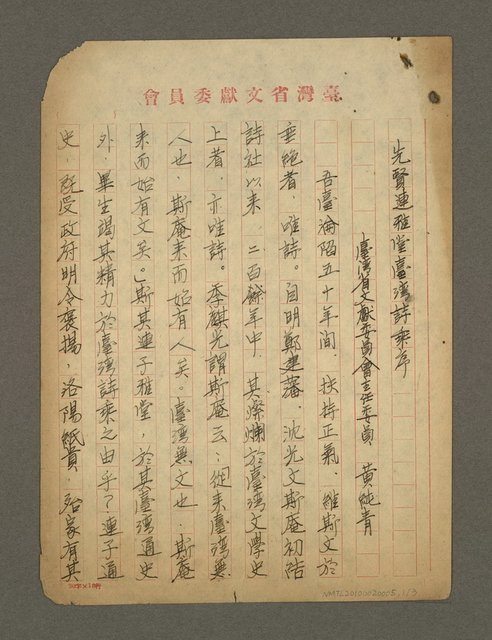 臺灣省文獻委員會
先賢連雅堂臺灣詩乘序
臺灣省文獻委員會主任委員 黃純青
吾臺淪陷五十年間，扶持正氣，維斯文於
垂絶者，唯詩。自明鄭建藩，沈光文斯庵初結
詩社以来，二百餘年中，其燦爛於臺灣文學史
上者，亦唯詩。季麒光謂斯庵云：從来臺灣無
人也，斯庵来而始有人矣。臺灣無文也，斯庵
来而始有文矣。」斯其連子雅堂，於其臺灣通史
外，畢生竭其精力於臺灣詩乘之由乎？連子通
史，既受政府明令褒揚，洛陽紙貴，殆家有其
NMTL20100020005, 1/3